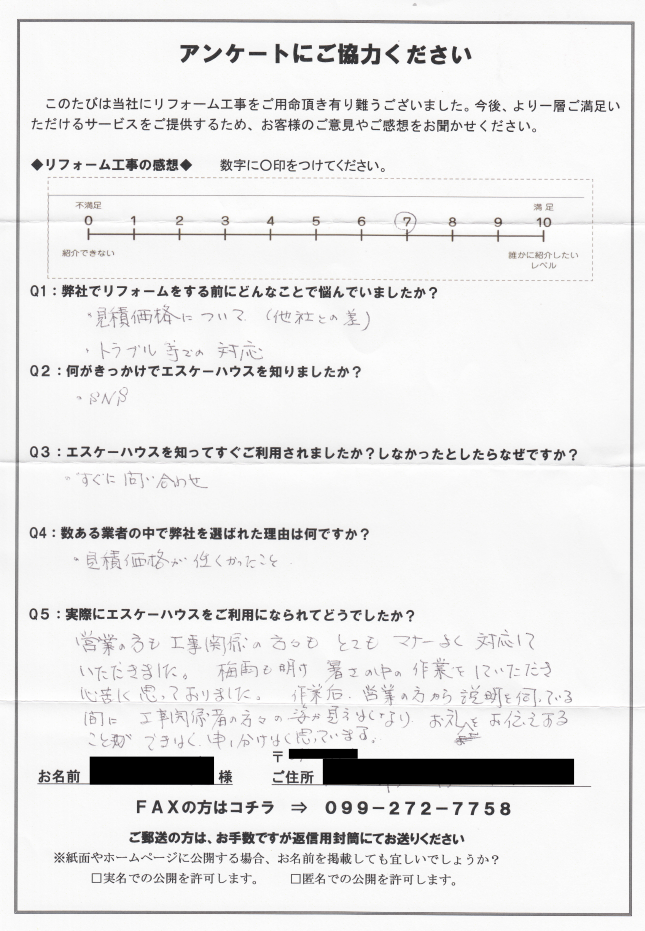 アンケートにご協力ください
このたびは当社にリフォーム工事をご用命頂き有り難うございました。今後、より一層ご満足い
ただけるサービスをご提供するため、お客様のご意見やご感想をお聞かせください。
◆リフォーム工事の感想◆ 数字に〇印をつけてください。
不満足 満足
0 1 2 3 4 5 6 7 8 9 10
紹介できない 誰かに紹介したい
レベル
Q1：弊社でリフォームをする前にどんなことで悩んでいましたか？
・見積価格について（他社との差）
・トラブル等での対応
Q2：何がきっかけでエスケーハウスを知りましたか？
・SNS
Q3：エスケーハウスを知ってすぐご利用されましたか？しなかったとしたらなぜですか？
・すぐに問い合わせ
Q4：数ある業者の中で弊社を選ばれた理由は何ですか？
・見積価格が低くかったこと
Q5：実際にエスケーハウスをご利用になられてどうでしたか？
営業の方も工事関係の方々もとてもマナーよく対応して
いただきました。梅雨も明け暑さの中の作業をしていただき
心苦しく思っておりました。作業后、営業の方から説明を伺っている
間に工事関係者の方々の姿が見えなくなり お礼をお伝えする
ことができなく申し分けなく思っています。
〒
お名前 様 ご住所
FAXの方はコチラ ⇒ 099-272-7758
ご郵送の方は、お手数ですが返信用封筒にてお送りください
※紙面やホームページに公開する場合、お名前を掲載しても宜しいでしょうか？
□実名での公開を許可します。 □匿名での公開を許可します。